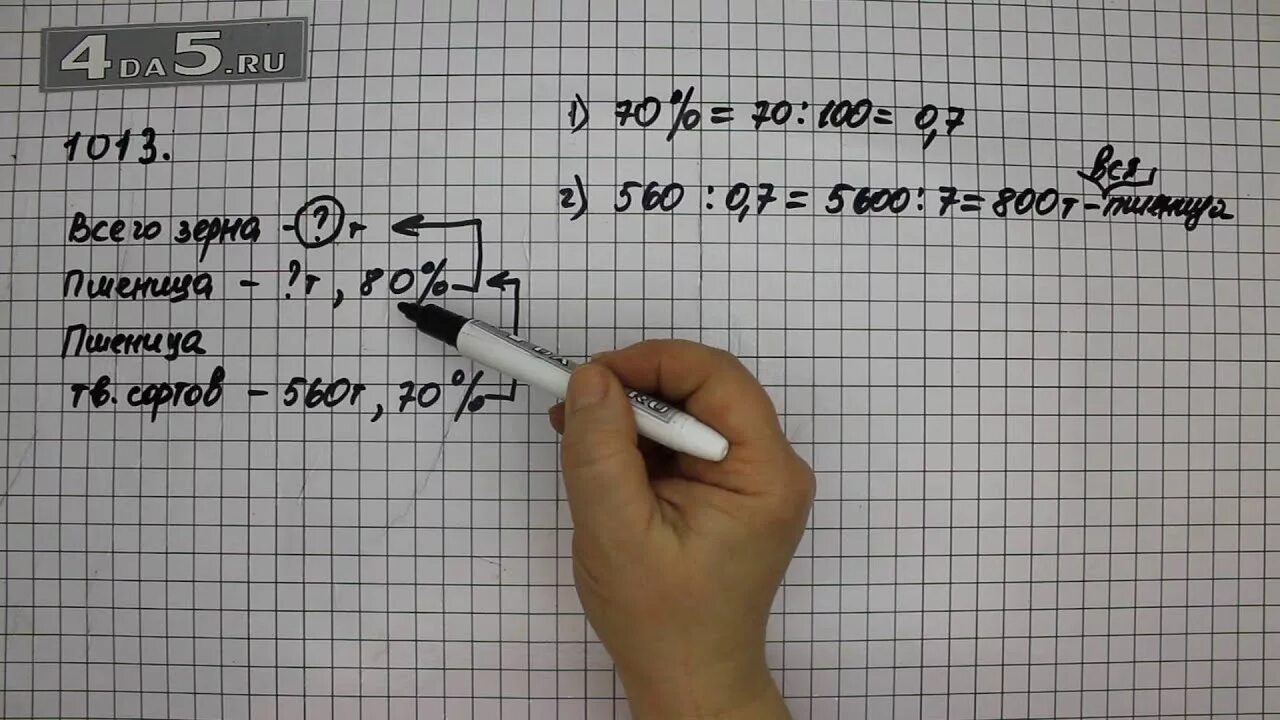 4DA5.RU
1013.
Всего зерна - ? т
Пшеница - ?т, 80%
Пшеница
тв. сортов - 560т, 70%
1) 70% = 70:100 = 0,7
2) 560 : 0,7 = 5600 : 7 = 800т - вся пшеница